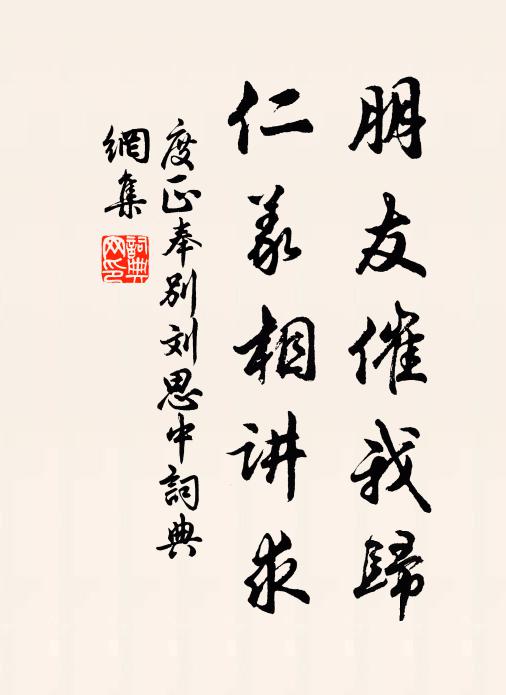 朋友催我歸
仁義相讲求
度正奉別刘思中詞典
網集
詞典網印